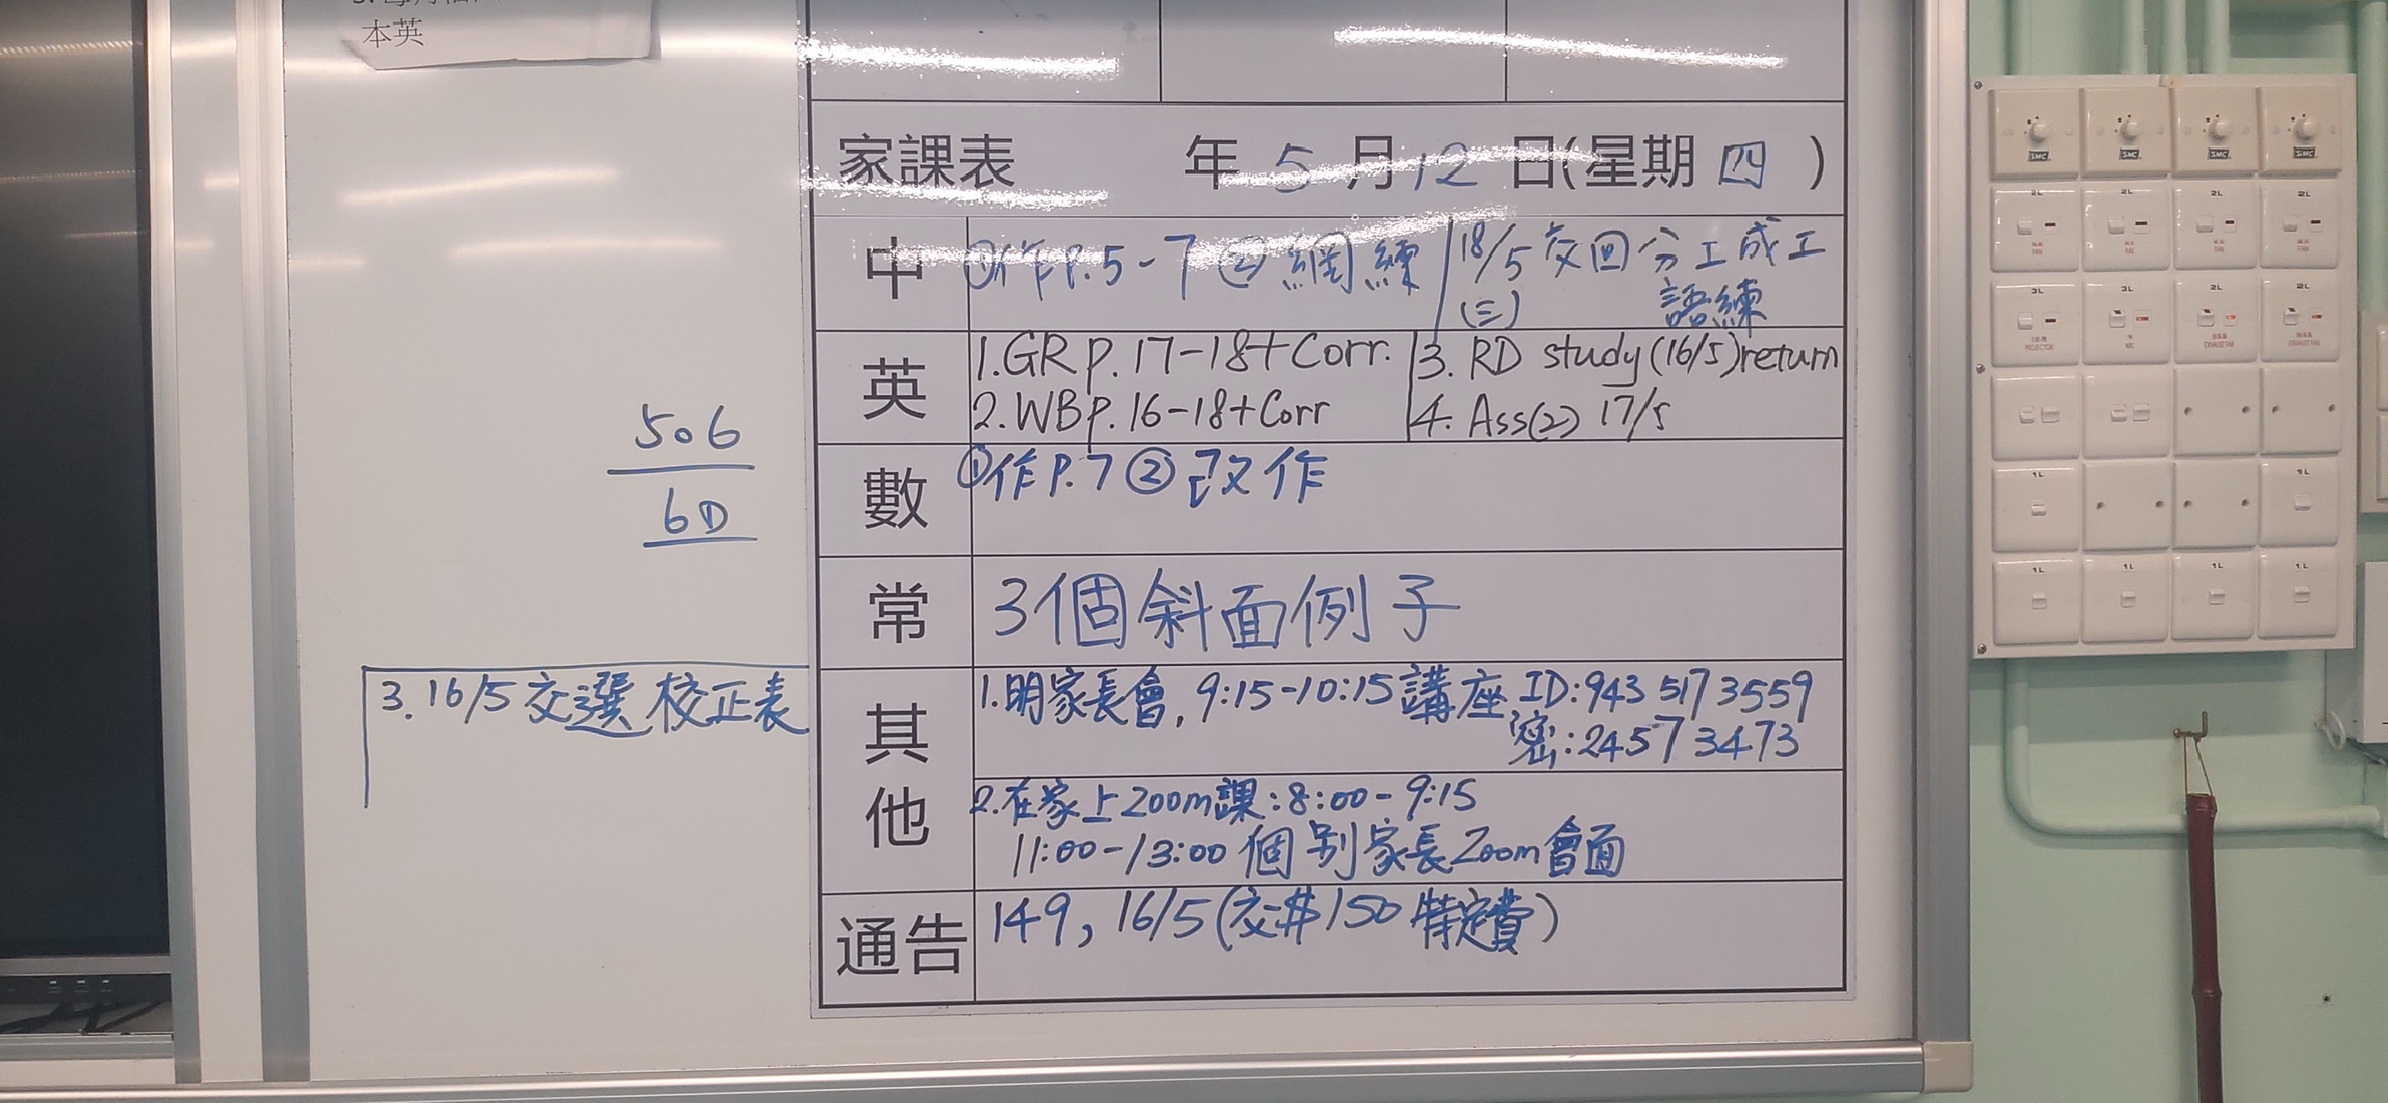 本英
家課表 年 5 月 12 日(星期 四 )
中 ①作P.5-7 ②網練 18/5 交回分工成工
(三) 語練
英 1.GR p.17-18+Corr. 3. RD study(16/5)return
2.WB p.16-18+Corr 4. Ass(2) 17/5
506
6D
數 ①作P.7 ②改作
常 3個斜面例子
3. 16/5 交選校正表
其他 1.明家長會, 9:15-10:15 講座 ID:943 517 3559
密:24573473
2.在家上Zoom課:8:00-9:15
11:00-13:00 個別家長Zoom會面
通告 149, 16/5(交$150特定費)
SMC SMC SMC SMC
2L 2L 2L 2L
FAN FAN FAN FAN
3L 3L 2L 2L
PROJECTOR MIC EXHAUST FAN EXHAUST FAN
1L 1L
1L 1L 1L 1L